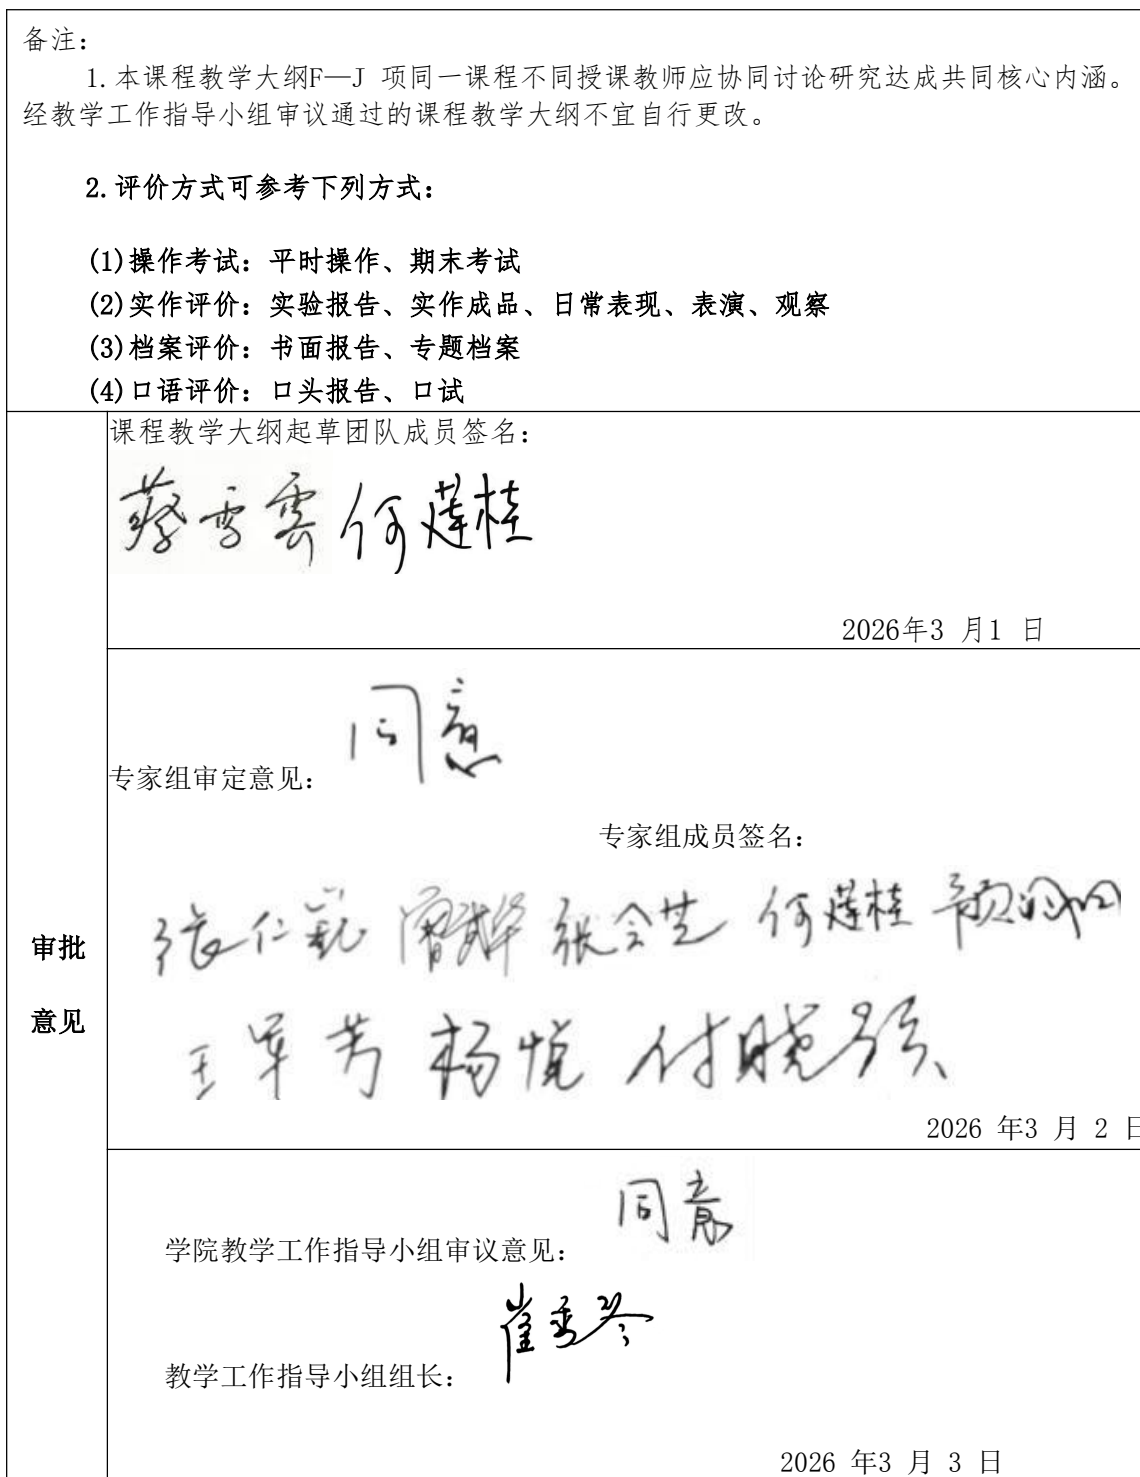 备注：
1.本课程教学大纲F—J 项同一课程不同授课教师应协同讨论研究达成共同核心内涵。
经教学工作指导小组审议通过的课程教学大纲不宜自行更改。
2.评价方式可参考下列方式：
(1)操作考试：平时操作、期末考试
(2)实作评价：实验报告、实作成品、日常表现、表演、观察
(3)档案评价：书面报告、专题档案
(4)口语评价：口头报告、口试
课程教学大纲起草团队成员签名：
蔡雪雲 何莲桂
2026年3 月1 日
同意
专家组审定意见：
专家组成员签名：
张仁 张会芝 何莲桂 颜
审批
意见
王军芳 杨悦 付晓强
2026 年3 月 2 日
同意
学院教学工作指导小组审议意见：
崔秀琴
教学工作指导小组组长：
2026 年3 月 3 日